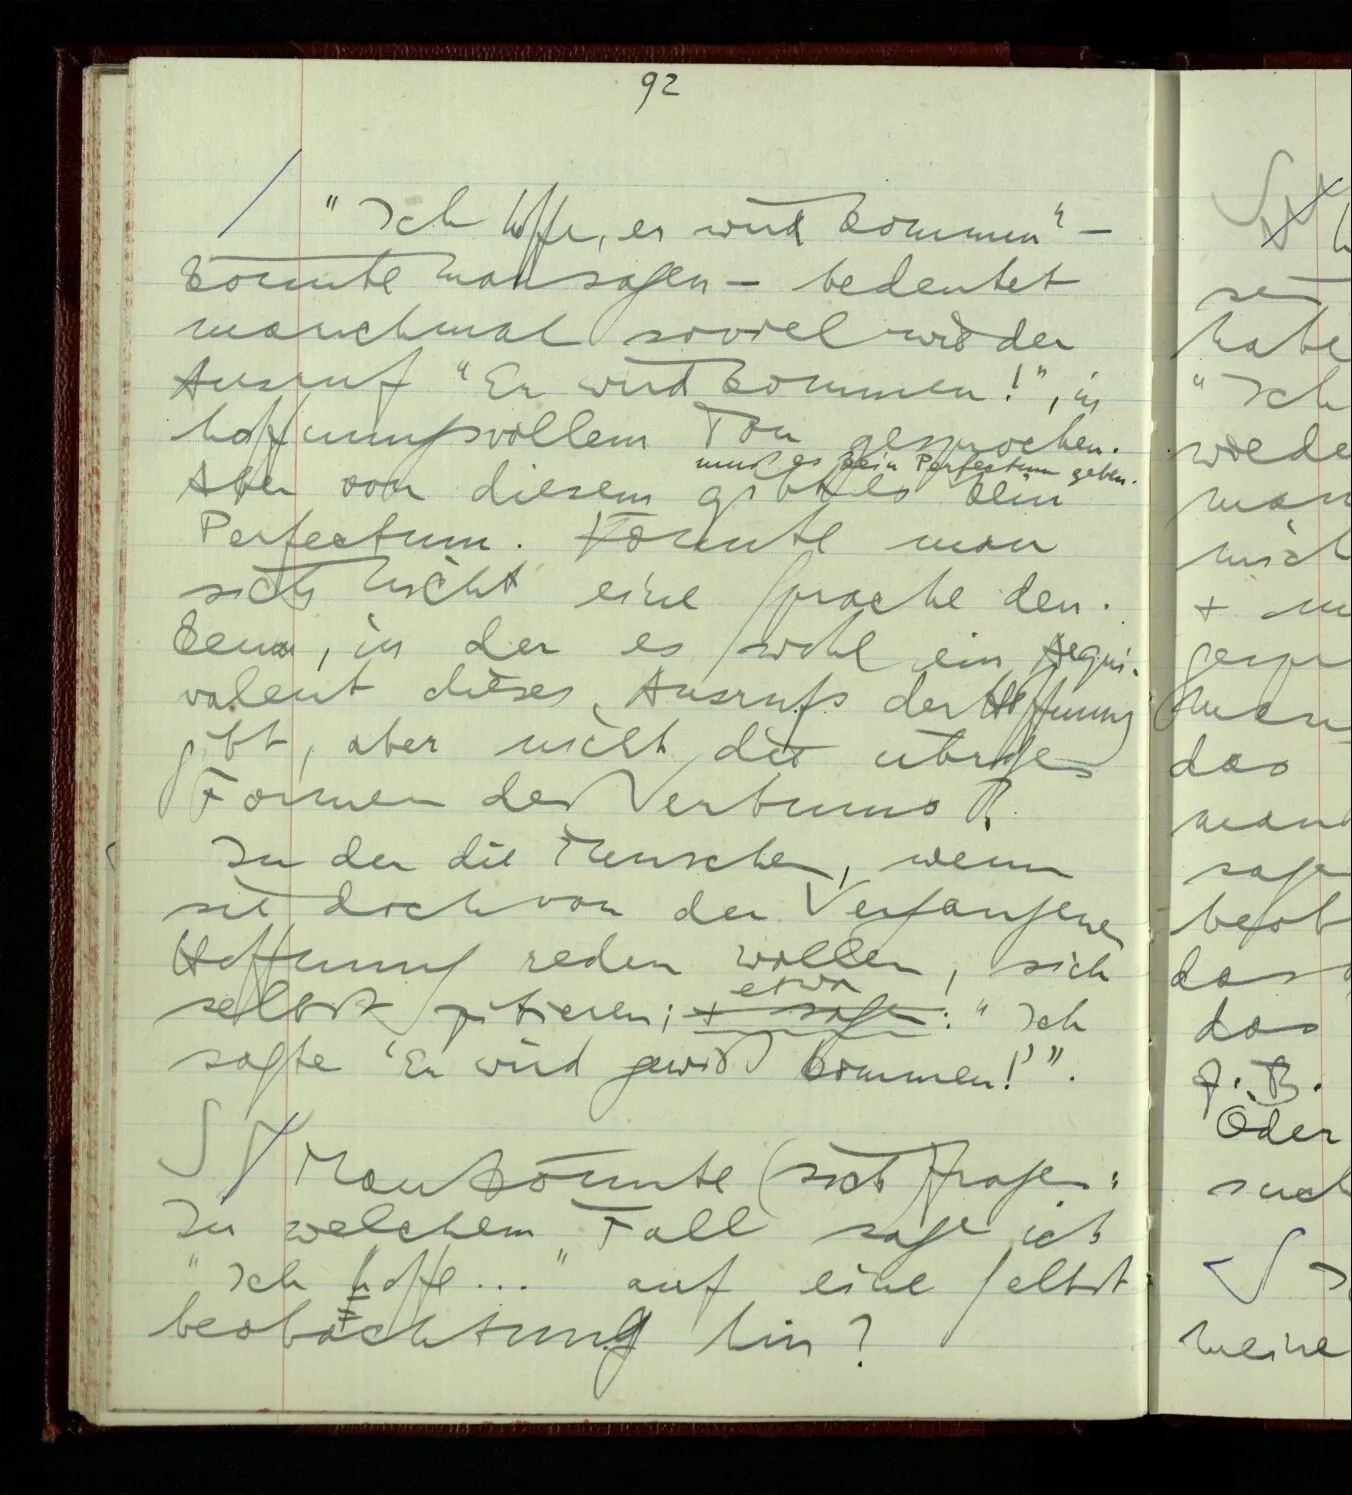 92
/ "Ich hoffe, er wird kommen" –
könnte man sagen – bedeutet
manchmal soviel wie der
Ausruf "Er wird kommen!", in
hoffnungsvollem Ton gesprochen.
muß es kein Perfectum geben.
Aber von diesem gibt es kein
Perfectum. Könnte man
sich nicht eine Sprache den-
ken, in der es wohl ein Aequi-
valent dieses Ausrufs der Hoffnung
gibt, aber nicht die übrigen
Formen des Verbums?
In der die Menschen, wenn
sie doch von der Vergangenen
Hoffnung reden wollen, sich
etwa
selbst zitieren; + sagen: "Ich
sagte 'Er wird gewiß kommen!'".
S / Man könnte (sich fragen:
In welchem Fall sage ich
"Ich hoffe..." auf eine Selbst
beobachtung hin?
se
habe
"Ich
wiede
man
mich
+
das
sage
das
das
z.B.
Oder
such
meine